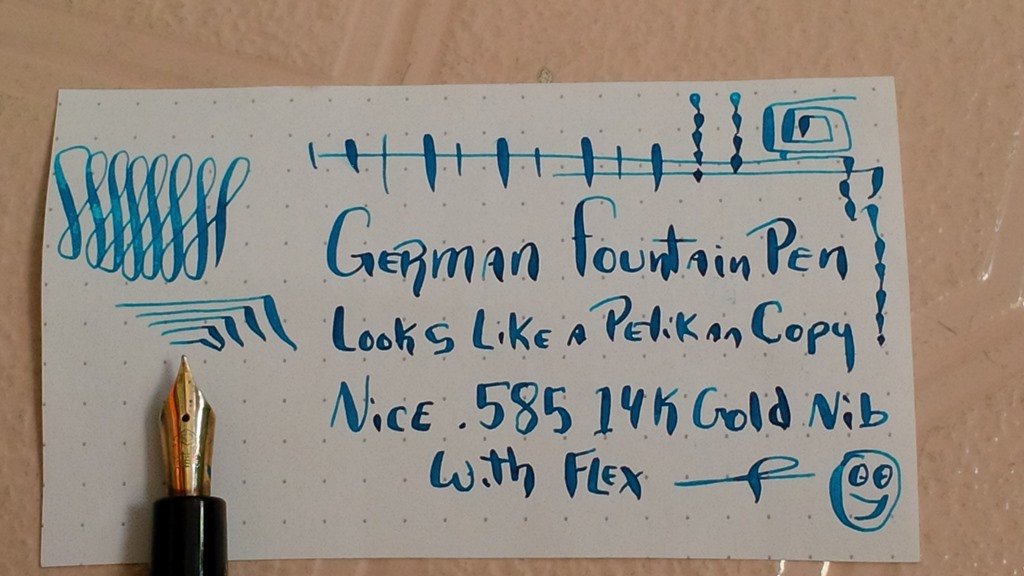 German Fountain Pen
Looks Like a Pelikan Copy
Nice .585 14K Gold Nib
With Flex